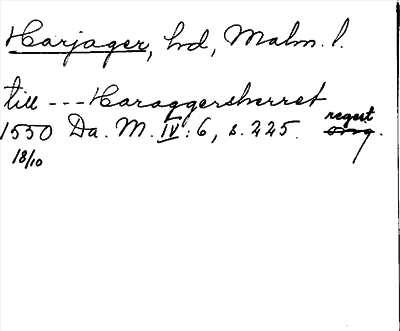 Harjager, hd, Malm. l.
till --- Haraggersherret
regest
1550 Da. M. IV: 6, s. 225. orig.
18/10